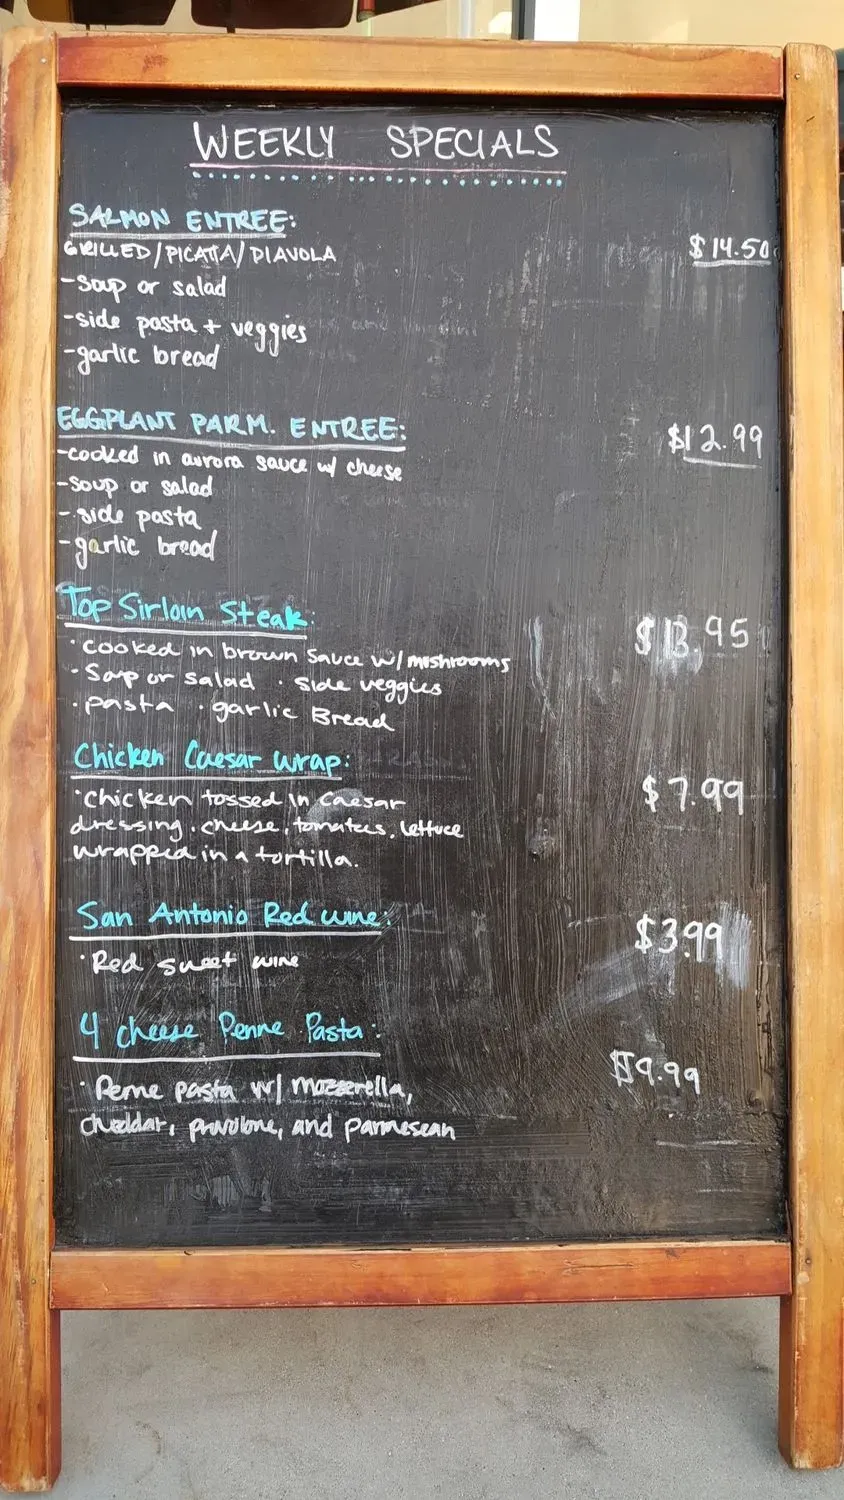 WEEKLY SPECIALS
SALMON ENTREE:
GRILLED/PICATTA/DIAVOLA $14.50
-soup or salad
-side pasta + veggies
-garlic bread
EGGPLANT PARM. ENTREE: $12.99
-cooked in aurora sauce w/ cheese
-soup or salad
-side pasta
-garlic bread
Top Sirloin Steak: $13.95
·cooked in brown sauce w/ mushrooms
·Soup or salad ·side veggies
·pasta ·garlic Bread
Chicken Caesar wrap: $7.99
·Chicken tossed in Caesar
dressing, cheese, tomatoes, lettuce
wrapped in a tortilla.
San Antonio Red wine: $3.99
·Red sweet wine
4 cheese Penne Pasta: $9.99
·Penne pasta w/ mozzerella,
cheddar, provolone, and parmesean